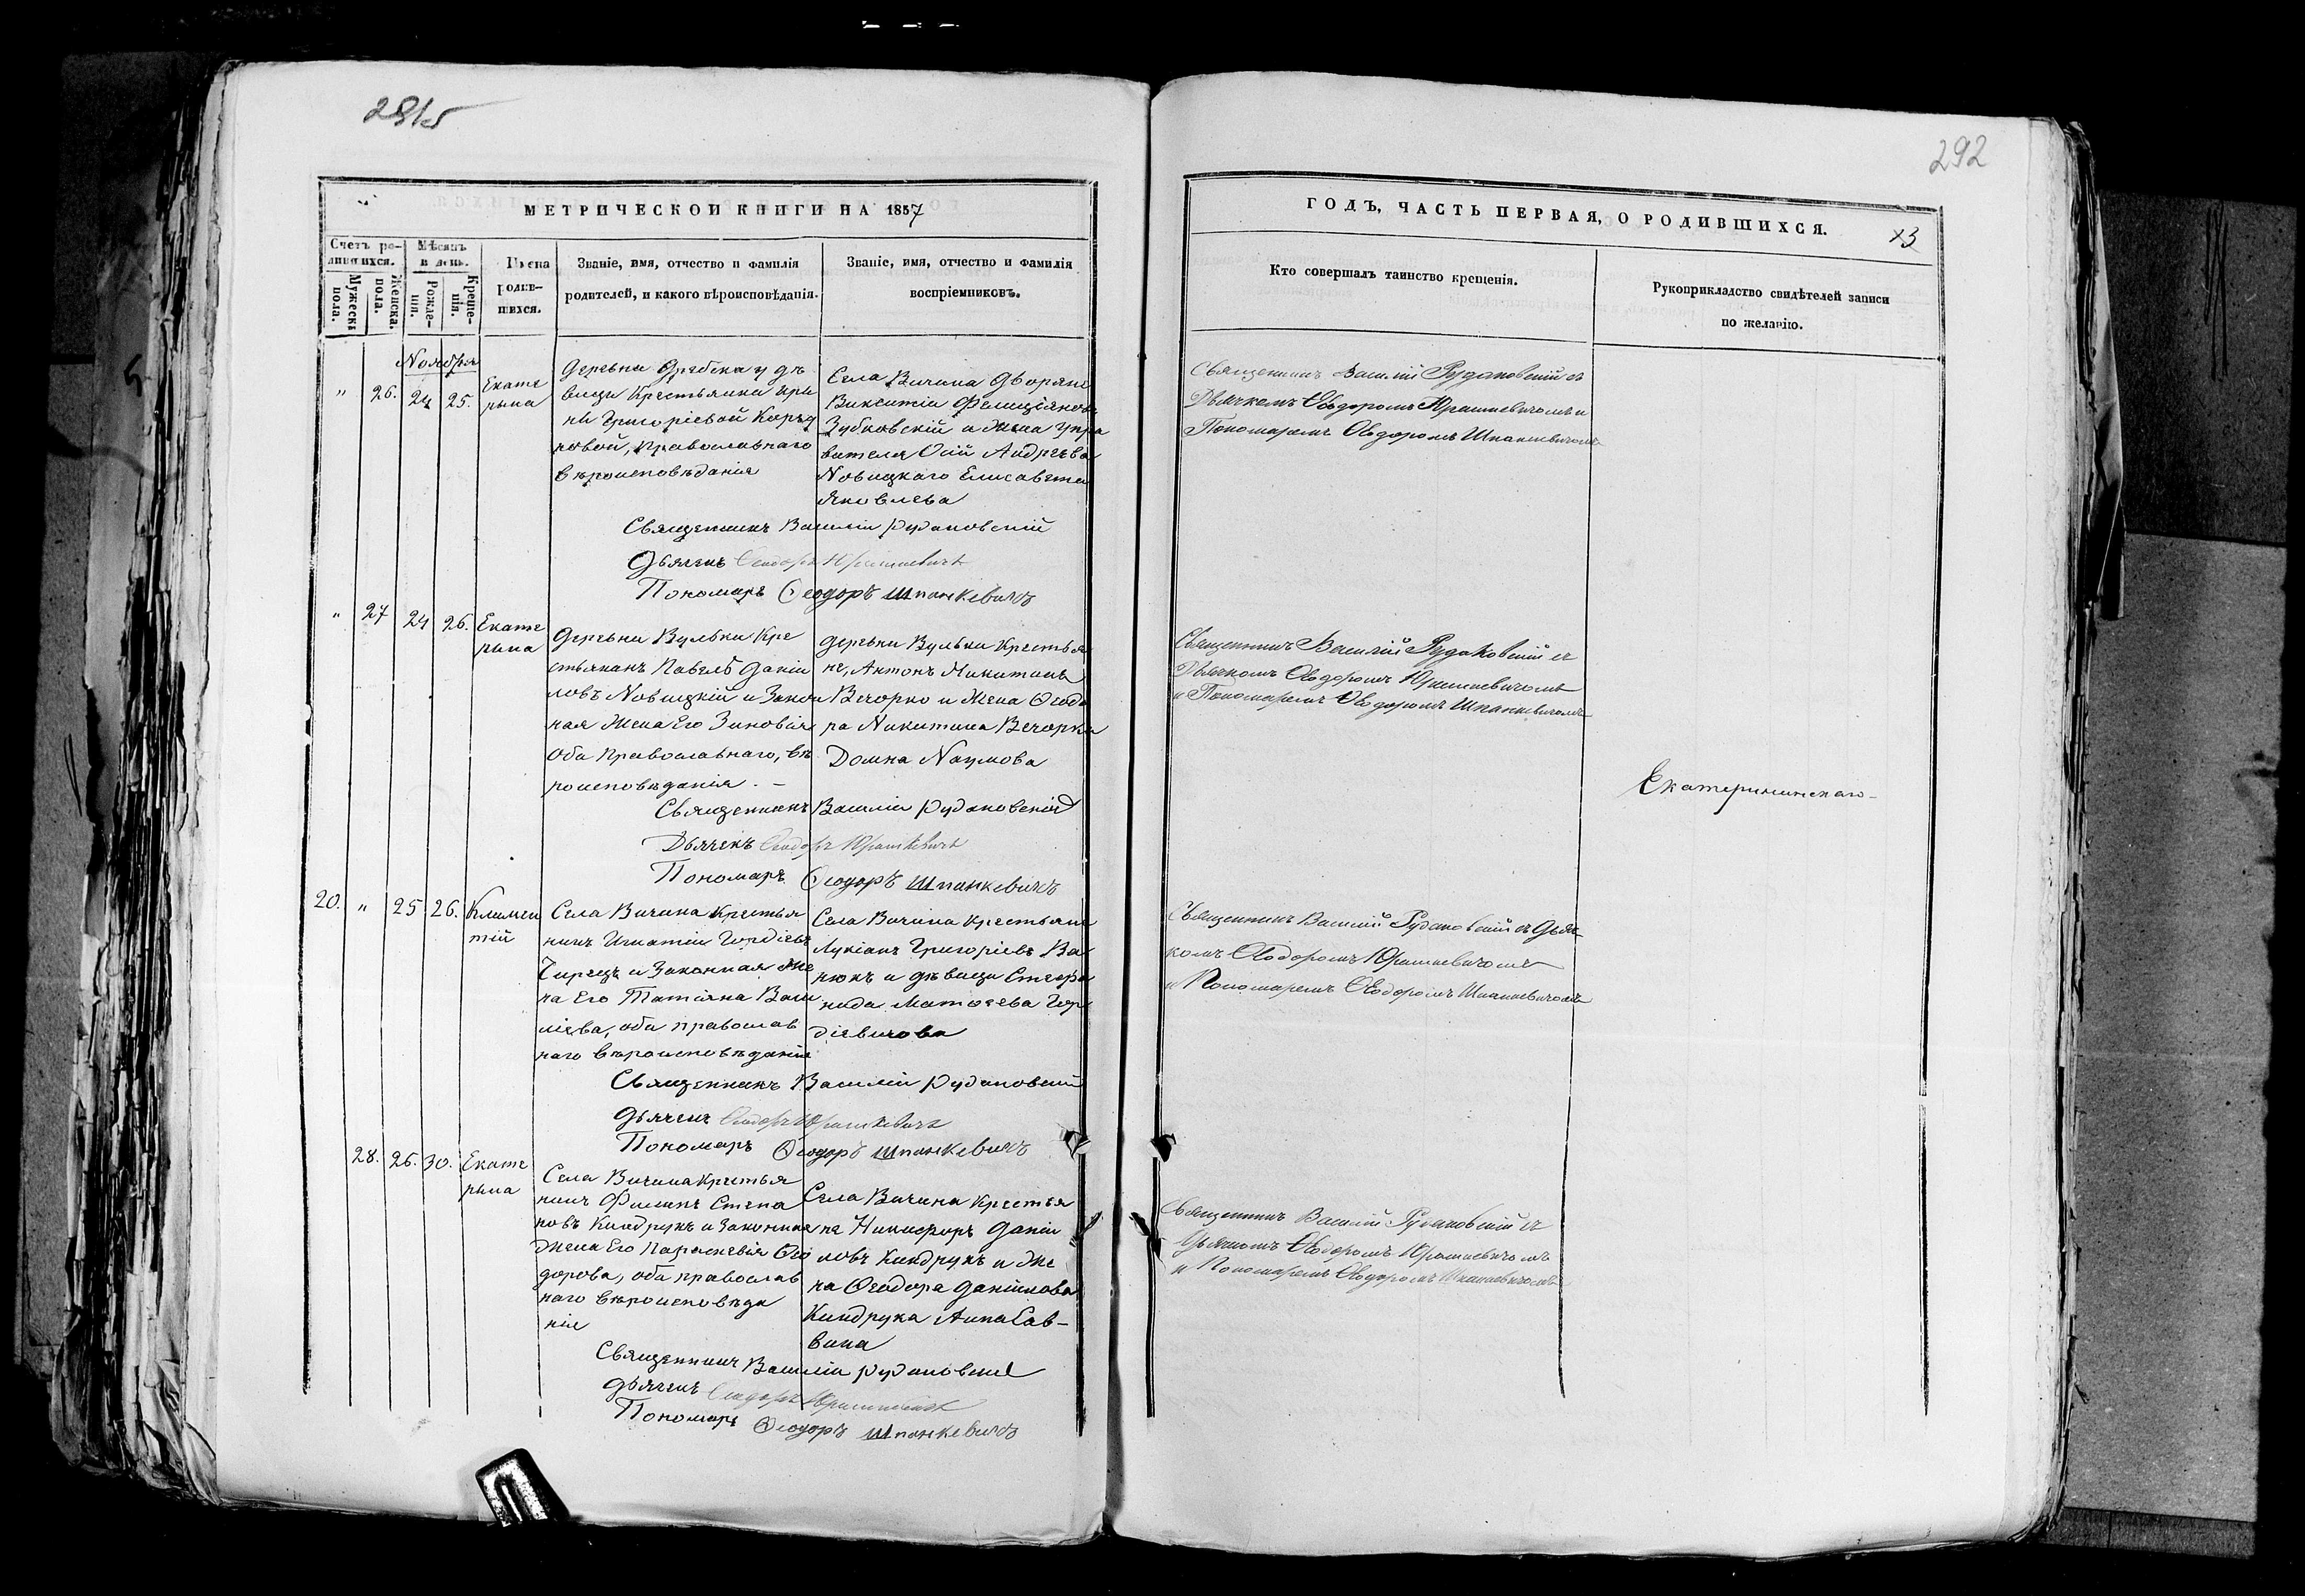 291об
292
МЕТРИЧЕСКОЙ КНИГИ НА 1857
Счетъ ро-
дившихся.
Мѣсяцъ
и день.
Мужеска
пола.
Женска.
пола.
Рожде-
нія.
Креще-
нія.
Имена
родив-
шихся.
Званіе, имя, отчество и фамилія
родителей, и какого вѣроисповѣданія.
Званіе, имя, отчество и фамилія
воспріемниковъ.
Ноября
" 26. 24 25.
Екате
рына
Деревни
вицы Крестьянки Ири
ны Григоріевой
новой, Православнаго
вѣроисповѣданія
Села Вичина Дворяне
Викентій Фелиціянов
Зубковскій и Жена Упра
вителя Осій Андреева
Новицкаго Елисавета
Яковлева
Священникъ Василій Рудановскій
Дьячекъ Ѳеодоръ Юрашкевичъ
Пономарь Ѳеодоръ Шпанкевичъ
" 27 24 26.
Екате
рына
Деревни Вульки Кре
стьянинъ Павелъ Даніи
ловъ Новицкій и Закон
ная Жена Его Зиновія
Оба Православнаго, вѣ
роисповѣданія. –
Деревни Вульки Крестья
не, Антонъ Никитинъ
Вечорко и Жена Ѳеодо
ра Никитина Вечорка
Домна Наумова
Священникъ Василій Рудановскій
Дьячекъ Ѳеодоръ Юрашкевичъ
Пономарь Ѳеодоръ Шпанкевичъ
20. " 25 26.
Климен
тій
Села Вичина Крестья
нинъ Игнатій Гордіевъ
и Законная Же
на Его Татіяна Васи
ліева, оба православ
наго вѣроисповѣданія
Села Вичина Крестьяне
Лукіанъ Григоріевъ Ва
нюкъ и дѣвица Стефа
нида Матѳеева Гор
діевичова
Священникъ Василій Рудановскій
Дьячекъ Ѳеодоръ Юрашкевичъ
Пономарь Ѳеодоръ Шпанкевичъ
28. 26. 30.
Екате
рына
Села Вичина Крестья
нинъ Филипъ Степа
новъ Киндрукъ и Законная
Жена Его Параскевія Ѳео
дорова, оба православ
наго вѣроисповѣда
нія
Села Вичина Крестья
не Никифоръ Даніи
ловъ Киндрукъ и Же
на Ѳеодора Даніилова
Киндрука Анна Сав-
вина
Священникъ Василій Рудановскій
Дьячекъ Ѳеодоръ Юрашкевичъ
Пономарь Ѳеодоръ Шпанкевичъ
ГОДЪ, ЧАСТЬ ПЕРВАЯ, О РОДИВШИХСЯ.
Кто совершалъ таинство крещенія.
Рукоприкладство свидѣтелей записи
по желанію.
Священникъ Василій Рудановскій съ
Дьячкомъ Ѳеодоромъ Юрашкевичомъ и
Пономаремъ Ѳеодоромъ Шпанкевичомъ
Священникъ Василій Рудановскій съ
Дьячкомъ Ѳеодоромъ Юрашкевичомъ
и Пономаремъ Ѳеодоромъ Шпанкевичомъ
Екатерининскаго –
Священникъ Василій Рудановскій съ Дьяч
комъ Ѳеодоромъ Юрашкевичомъ
и Пономаремъ Ѳеодоромъ Шпанкевичомъ
Священникъ Василій Рудановскій съ
Дьячкомъ Ѳеодоромъ Юрашкевичомъ
и Пономаремъ Ѳеодоромъ Шпанкевичомъ